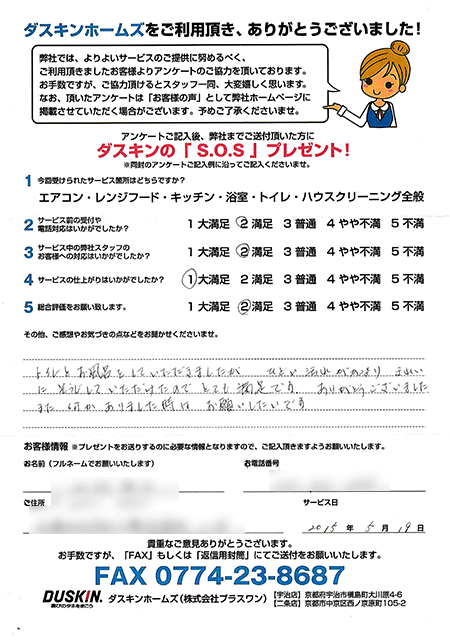 ダスキンホームズをご利用頂き、ありがとうございました！
弊社では、よりよいサービスのご提供に努めるべく、
ご利用頂きましたお客様よりアンケートのご協力を頂いております。
お手数ですが、ご協力頂けるとスタッフ一同、大変嬉しく思います。
なお、頂いたアンケートは「お客様の声」として弊社ホームページに
掲載させていただく場合がございます。予めご了承くださいませ。
アンケートご記入後、弊社までご送付頂いた方に
ダスキンの「S.O.S」プレゼント！
※同封のアンケートご記入例に沿ってご記入くださいませ。
1 今回受けられたサービス箇所はどちらですか？
エアコン・レンジフード・キッチン・浴室・トイレ・ハウスクリーニング全般
2 サービス前の受付や
電話対応はいかがでしたか？ 1 大満足 2 満足 3 普通 4 やや不満 5 不満
3 サービス中の弊社スタッフの
お客様への対応はいかがでしたか？ 1 大満足 2 満足 3 普通 4 やや不満 5 不満
4 サービスの仕上がりはいかがでしたか？ 1 大満足 2 満足 3 普通 4 やや不満 5 不満
5 総合評価をお願い致します。 1 大満足 2 満足 3 普通 4 やや不満 5 不満
その他、ご感想やお気づきの点などをお聞かせくださいませ。
トイレとお風呂をしていただきましたが ひどい汚れがかなり きれい
に そうじしていただけたので とても 満足です。 ありがとうございました
また 何か ありました時は お願いしたいです
お客様情報 ※プレゼントをお送りするのに必要な情報となりますので、ご記入頂きますようお願いいたします。
お名前（フルネームでお願いいたします） お電話番号
ご住所 サービス日
2015 年 5 月 19 日
貴重なご意見ありがとうございます。
お手数ですが、「FAX」もしくは「返信用封筒」にてご送付をお願いいたします。
FAX 0774-23-8687
DUSKIN. 喜びのタネをまこう ダスキンホームズ（株式会社プラスワン） 【宇治店】京都府宇治市槇島町大川原4-6
【二条店】京都市中京区西ノ京原町105-2